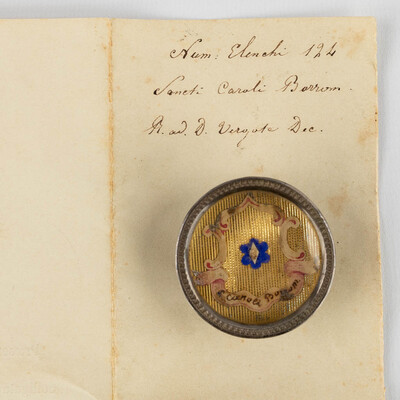 Num: Elenchi 124
Sancti Caroli Borrom.
R. ad. D. Vergote Dec.
S. Caroli Borrom.